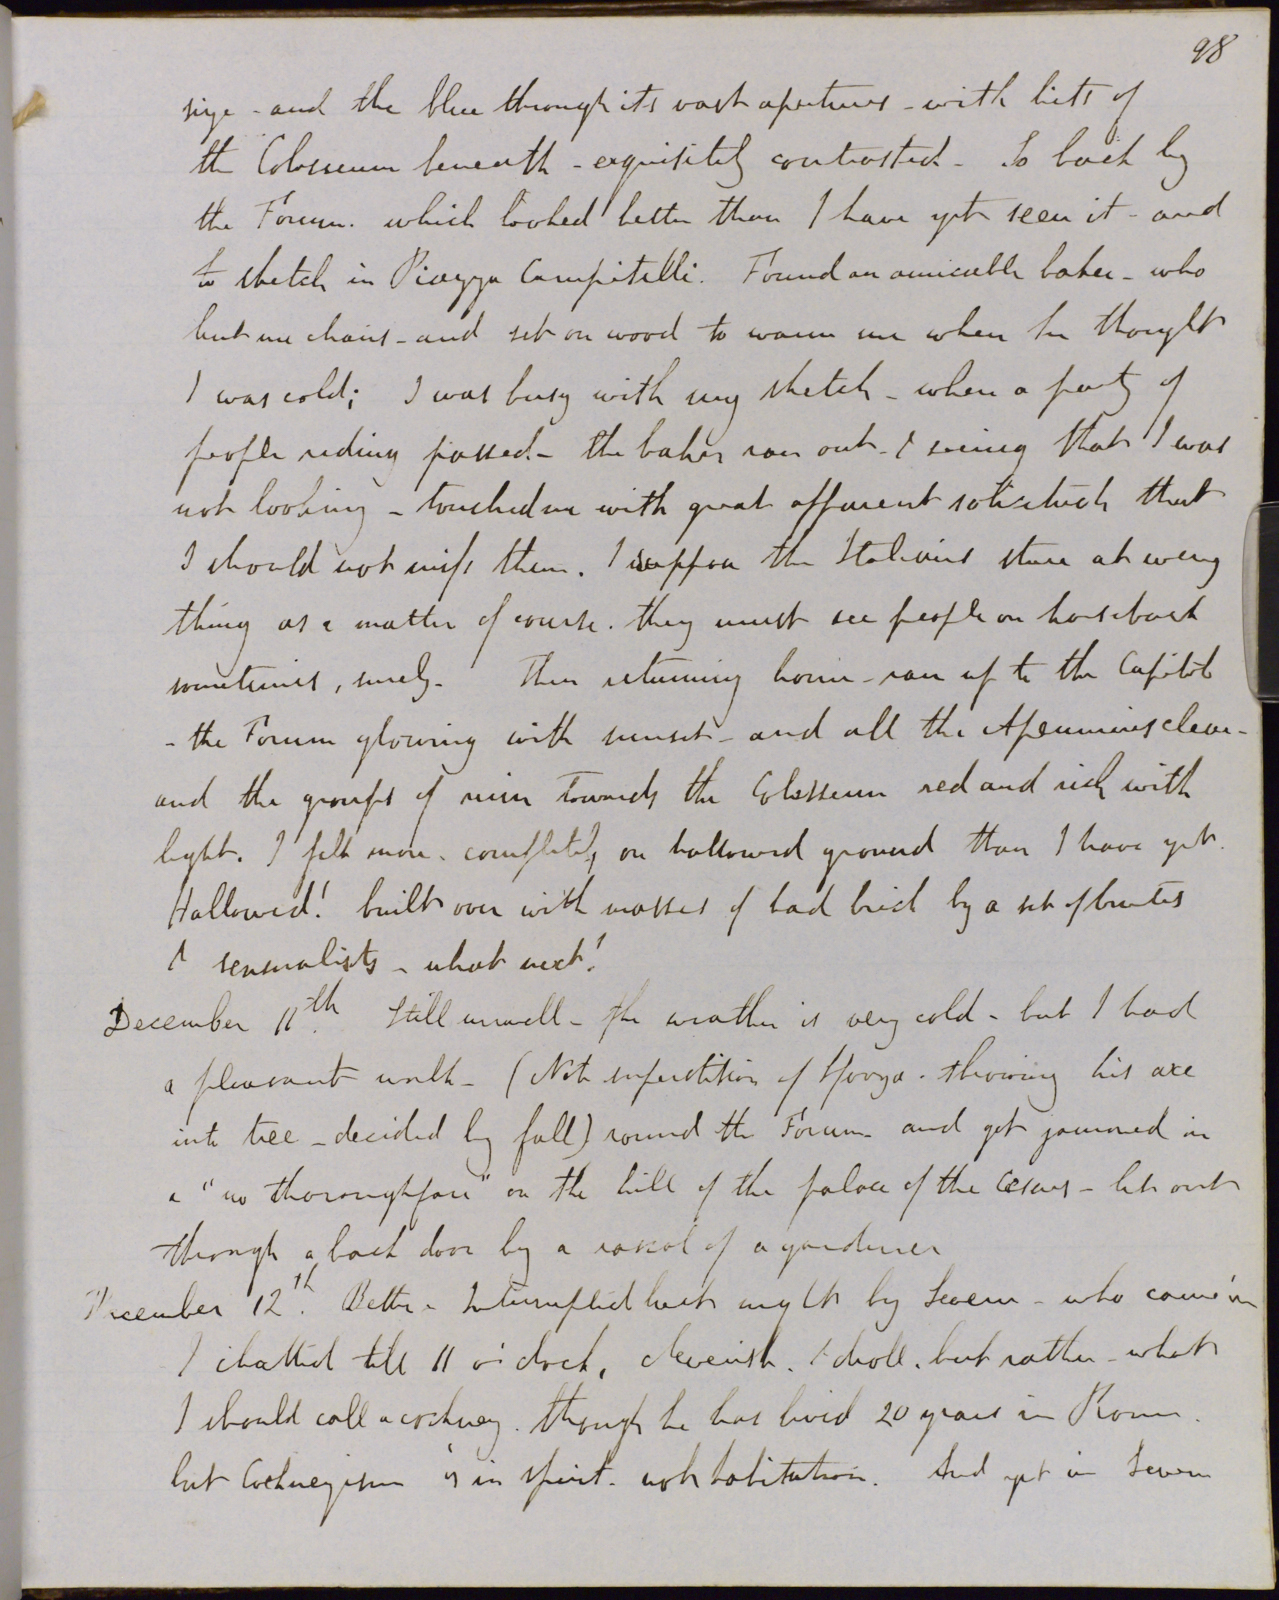 98
size - and the blue through its vast apertures - with bits of
the Colosseum beneath - exquisitely contrasted - So back by
the Forum. which looked better than I have yet seen it - and
to sketch in Piazza Campitelli. Found an amicable baker - who
lent me chairs - and set on wood to warm me when he thought
I was cold; I was busy with my sketch - when a party of
people riding passed - the baker ran out - & seeing that I was
not looking - touched me with great apparent solicitude that
I should not miss them. I suppose the Italians stare at every
thing as a matter of course. they must see people on horseback
sometimes, surely - Then returning home - ran up to the Capitol
- the Forum glowing with sunset - and all the Apennines clear -
and the groups of ruin towards the Colosseum red and rich with
light. I felt more. completely on hallowed ground than I have yet.
Hallowed! built over with masses of bad brick by a set of brutes
& sensualists - what next!
December 11th. Still unwell - the weather is very cold - but I had
a pleasant walk - (Note superstition of throwing his axe
into tree - decided by fall) round the Forum - and got jammed in
a "no thoroughfare" on the hill of the palace of the Cæsars - let out
through a back door by a rascal of a gardener
December 12th. Better - Interrupted last night by Severn - who came in
& chatted till 11 o'clock, cleverish. & droll. but rather - what
I should call a cockney. though he has lived 20 years in Rome.
but Cockneyism is in spirit - not habitation. And yet in Severn